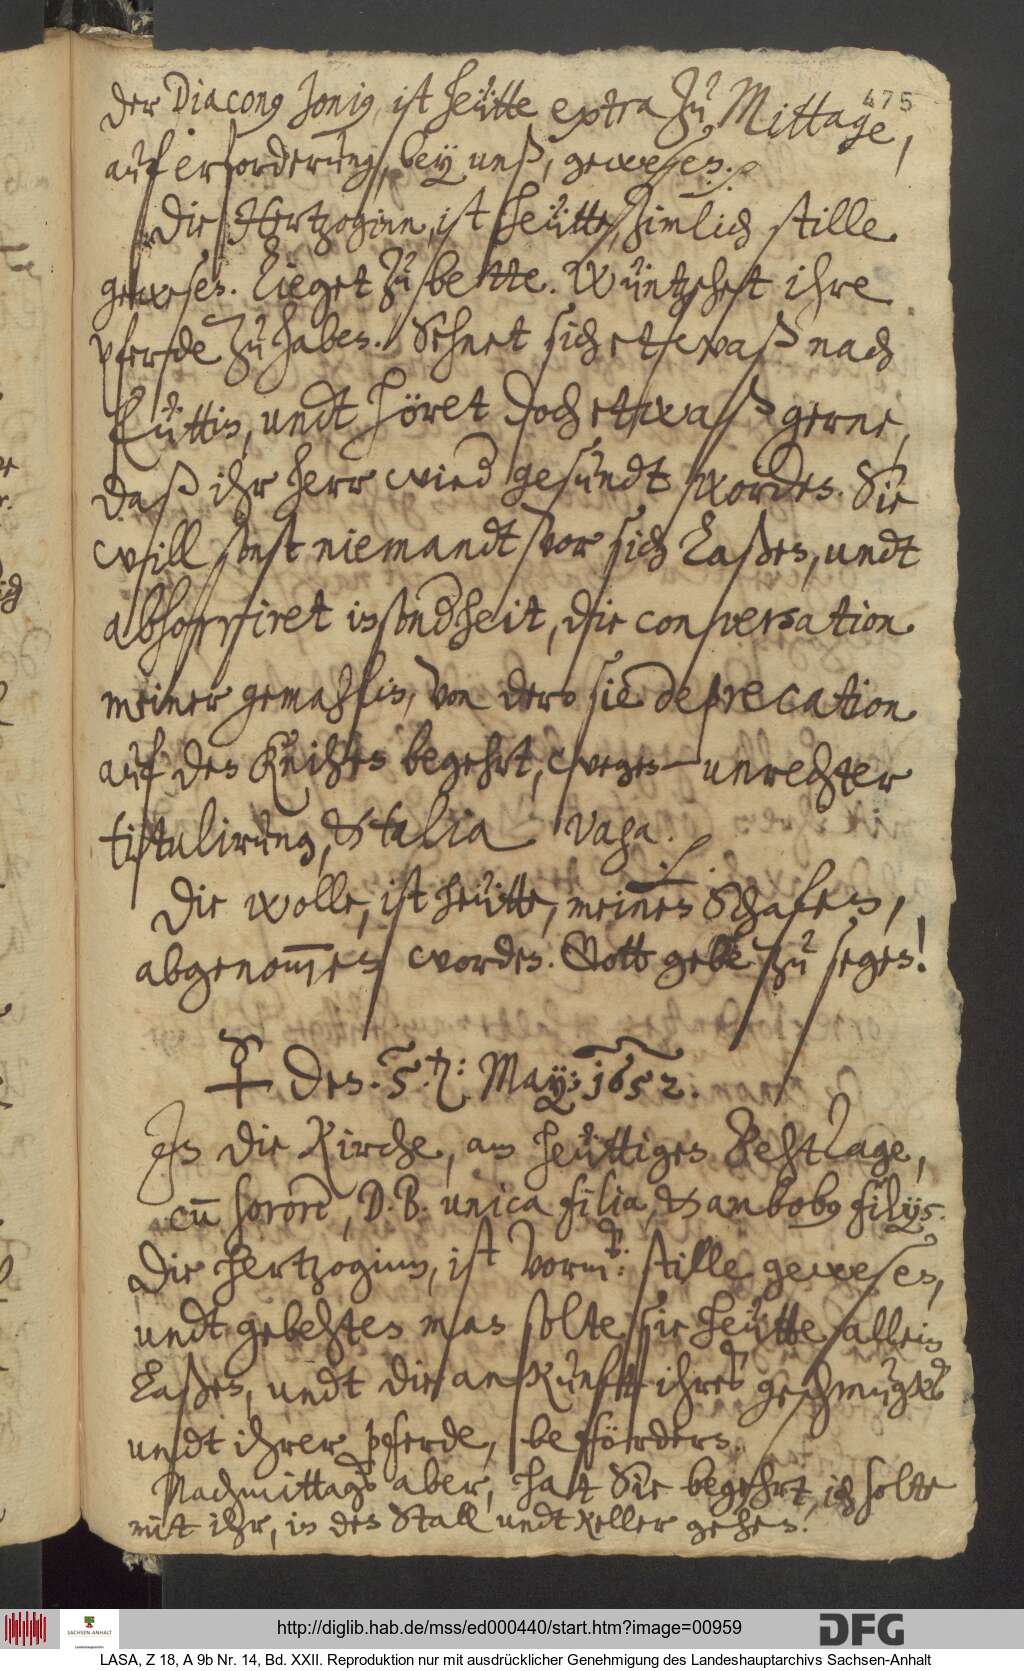 475
Der Diaconus Jonius, ist heütte extra zu Mittage,
auf erforderung, bey unß, gewesen.
Die Hertzoginn, ist heütte, zimlich stille
gewesen. Lieget zu bette. Wüntzschet ihre
pferde zu haben. Sehnet sich etwaß nach
Eüttin, undt höret doch etwaß gerne,
daß ihr herr wied gesundt worden. Sie
will sonst niemandt vor sich laßen, undt
abhorriret insonderheit, die conversation
meiner gemahlin, von dero sie deprecation
auf den Knihen begehrt, wegen unrechter
titulirung, & talia vaga.
Die wolle, ist heütte, meinen Schafen,
abgenommen worden. Gott gebe zu segen!
♀ den. 5.ten: May: 1652.
In die Kirche, am heüttigen Behttage,
cum sorore, D. B. unica filia, & ambobus filijs.
Die Hertzoginn, ist vorm: stille gewesen,
undt gebehten man solte sie heütte allein
laßen, undt die ankunft ihres geschmugks
undt ihrer pferde, beförders.
Nachmittags aber, hat Sie begehrt, ich solte
mit ihr, in den Stall undt Keller gehen.
SACHSEN-ANHALT
Landeshauptarchiv
http://diglib.hab.de/mss/ed000440/start.htm?image=00959
DFG
LASA, Z 18, A 9b Nr. 14, Bd. XXII. Reproduktion nur mit ausdrücklicher Genehmigung des Landeshauptarchivs Sachsen-Anhalt